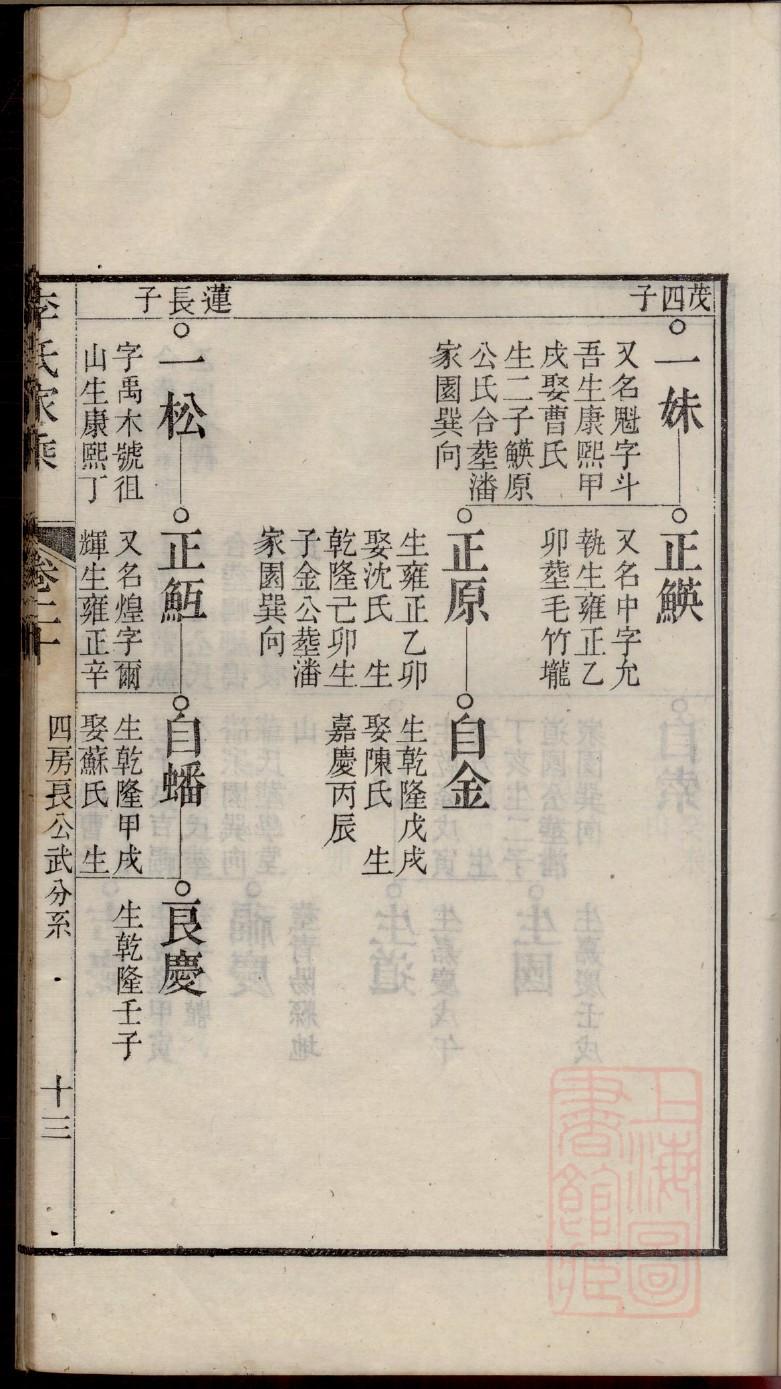 茂四子
一妹
又名魁字斗
吾生康熙甲
戌娶曹氏
生二子䱀原
公氏合塟潘
家園巽向
正䱀
又名中字允
執生雍正乙
卯塟毛竹壠
正原
生雍正乙卯
娶沈氏 生
乾隆己卯生
子金公塟潘
家園巽向
自金
生乾隆戊戌
娶陳氏 生
嘉慶丙辰
蓮長子
一松
字禹木號徂
山生康熙丁
正䱇
又名煌字爾
輝生雍正辛
自蟠
生乾隆甲戌
娶蘇氏 生
良慶
生乾隆壬子
李氏家乘
卷二十
四房長公武分系
十三
上海圖
書館藏